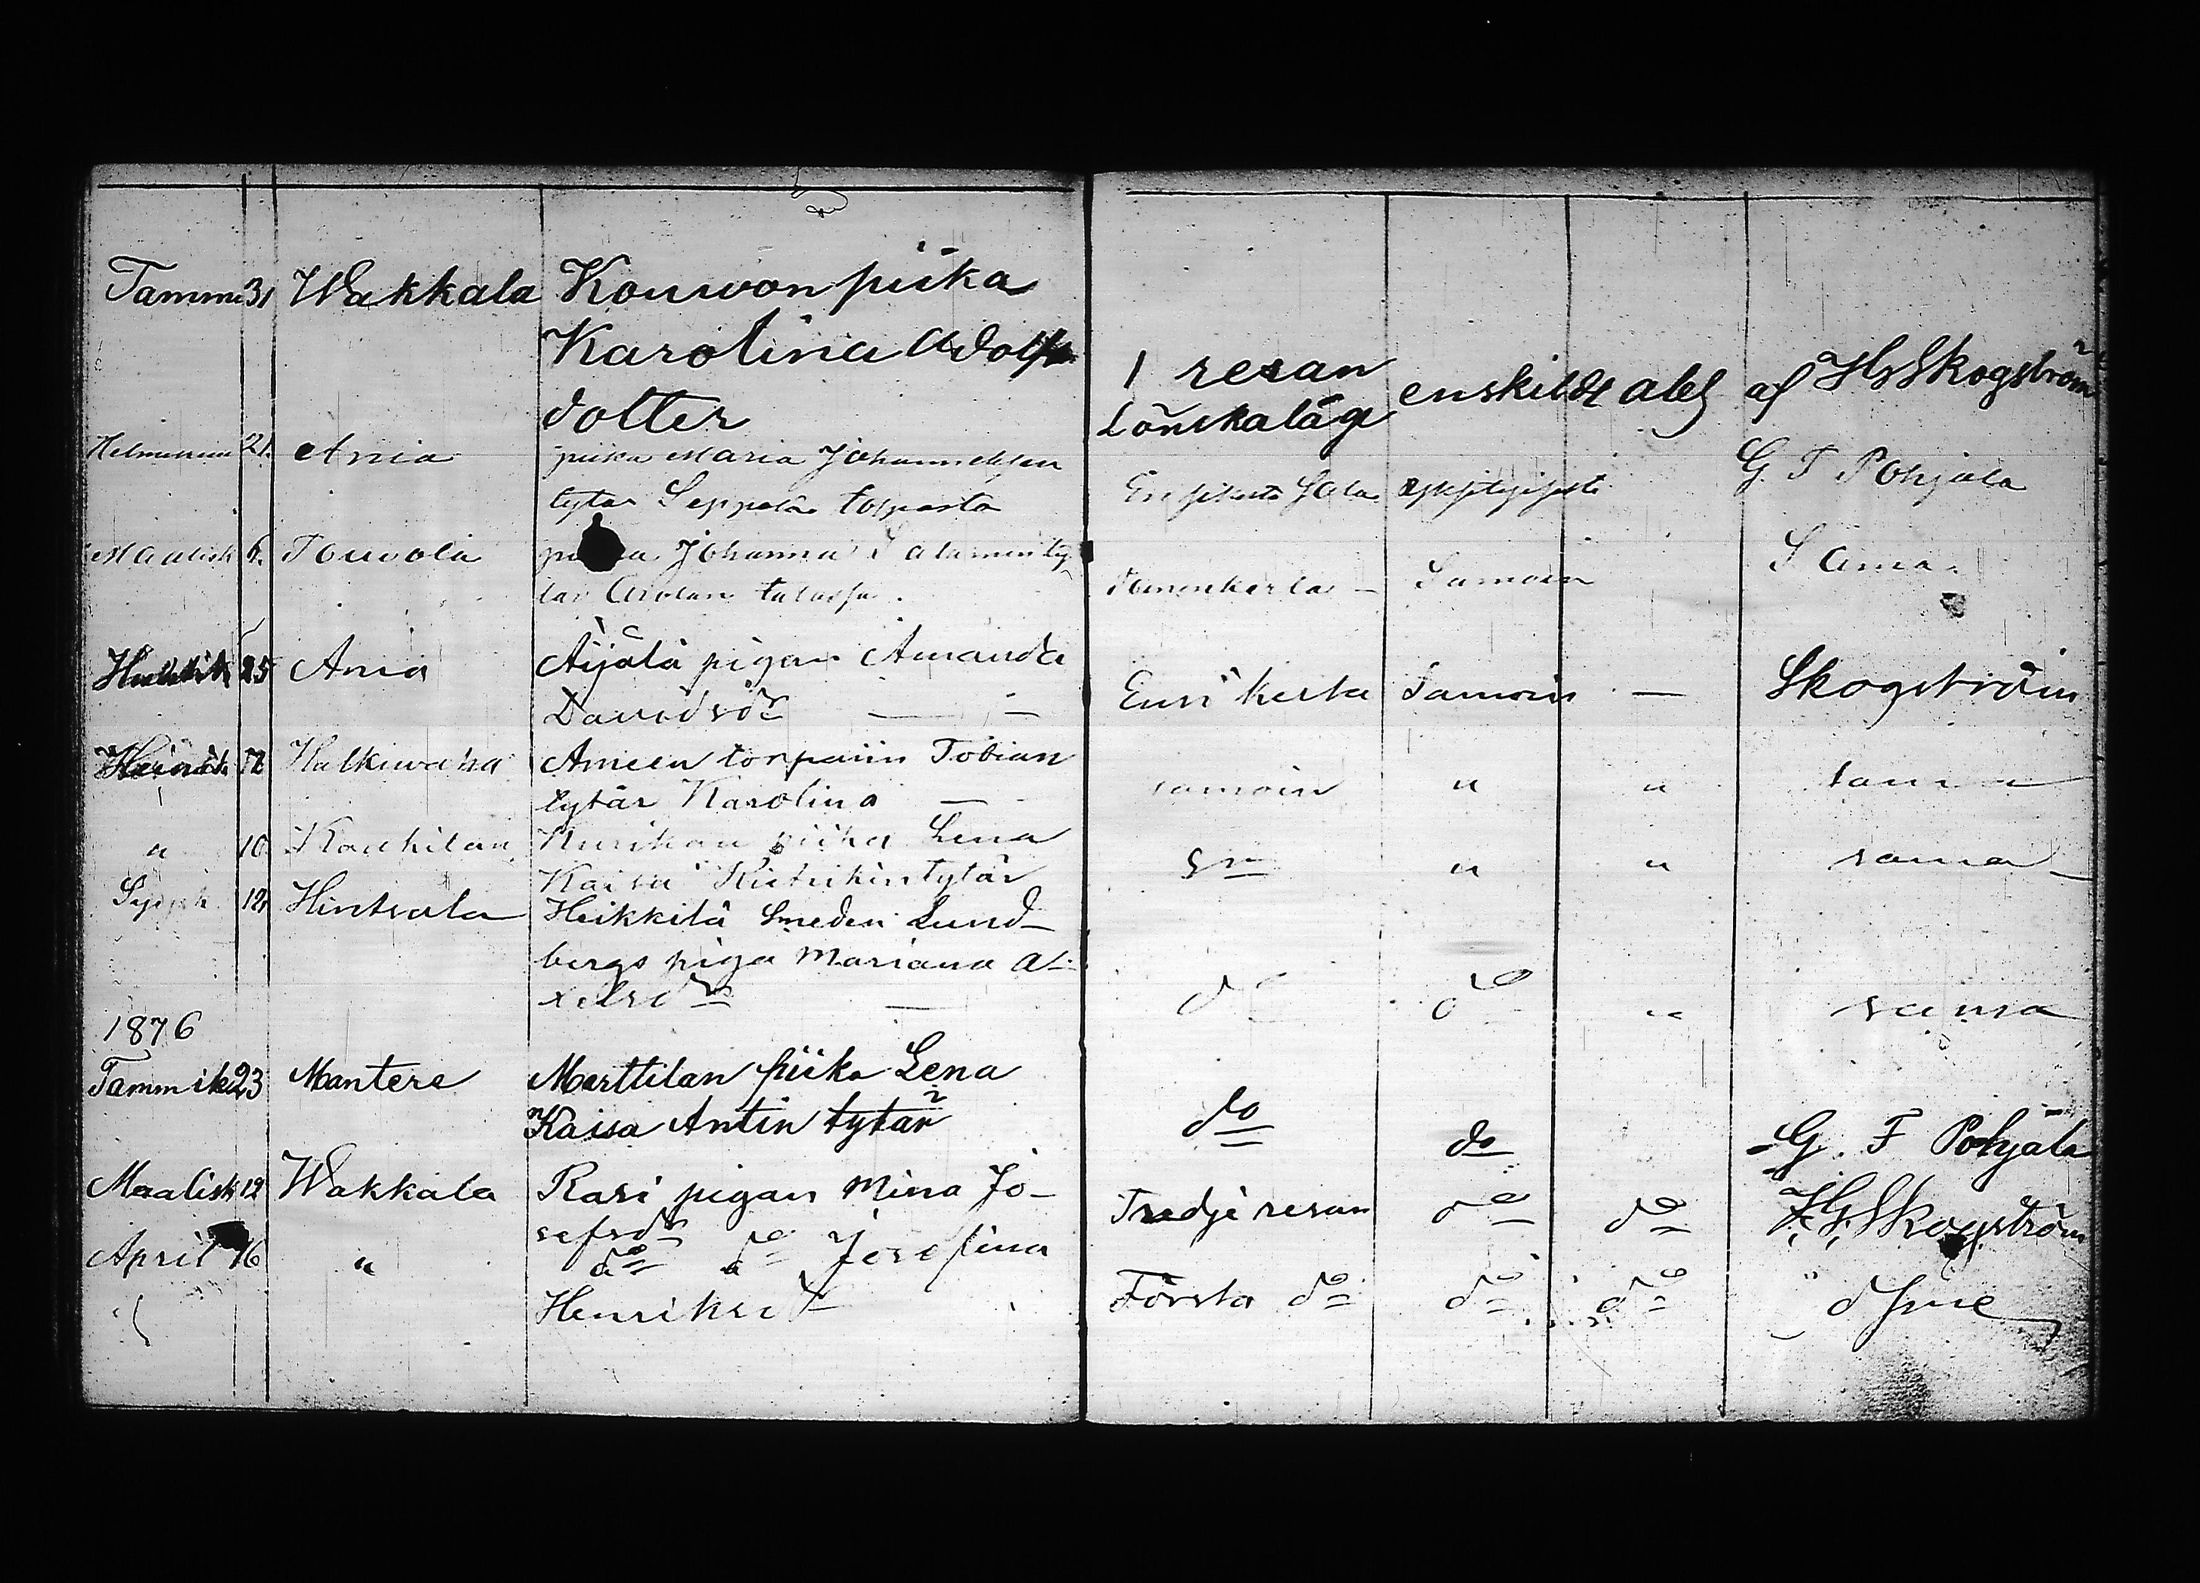 Tammi 31 Wakkala Kouwon piika
Karolina Adolfs
dotter
1 resan enskildt abs af HGSkogström
Lönskaläge
Helmikuu 21. Ania piika Maria Johanneksen
tytär Seppälän torpasta
G. F Pohjala
Maalisk 6. Touvola Johanna Salamonty
tär talossa.
Samoin Sama.
25 Ania Äijälä pigan Amanda
Davidsdr
Ensi kerta Samoin — Skogström
Heinäk 12 Ameen torparin Tobian
tytär Karolina —
samoin " " sama
" 10 piika Lena
Kaisa tytär
Sm " " sama
12 Hintsala Heikkilä Smeden Lund-
bergs piga Mariana A-
xelsdr —
do do " sama
1876
Tammik 23 Mantere Marttilan piika Lena
Kaisa Antin tytär
do do G. F Pohjala
Maalisk 12 Wakkala Rasi pigan Mina Jo-
sefsdr
Tredje resan do do HGSkogström
April 16 " do do Josefina
Henriksd
Första do do do " dsme